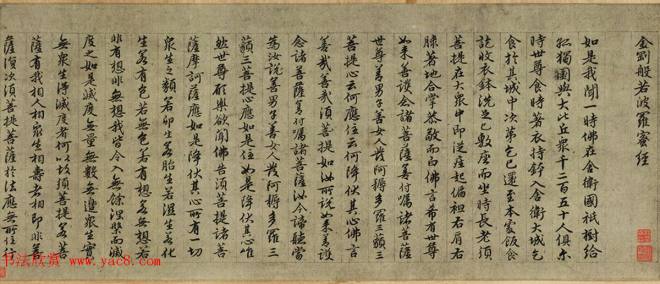 金剛般若波羅蜜經
如是我聞一時佛在舍衛國祇樹給
孤獨園與大比丘眾千二百五十人俱尔
時世尊食時著衣持鉢入舍衛大城乞
食於其城中次第乞已還至本處飯食
訖收衣鉢洗足已敷座而坐時長老須
菩提在大眾中即從座起偏袒右肩右
膝著地合掌恭敬而白佛言希有世尊
如來善護念諸菩薩善付囑諸菩薩
世尊善男子善女人發阿耨多羅三藐三
菩提心云何應住云何降伏其心佛言
善哉善哉須菩提如汝所說如來善護
念諸菩薩善付囑諸菩薩汝今諦聽當
為汝說善男子善女人發阿耨多羅三
藐三菩提心應如是住如是降伏其心唯
然世尊願樂欲聞佛告須菩提諸菩
薩摩訶薩應如是降伏其心所有一切
眾生之類若卵生若胎生若濕生若化
生若有色若無色若有想若無想若
非有想非無想我皆令入無餘涅槃而滅
度之如是滅度無量無數無邊眾生實
無眾生得滅度者何以故須菩提若菩
薩有我相人相眾生相壽者相即非菩
薩復次須菩提菩薩於法應無所住行
书法欣赏 www.yac8.com